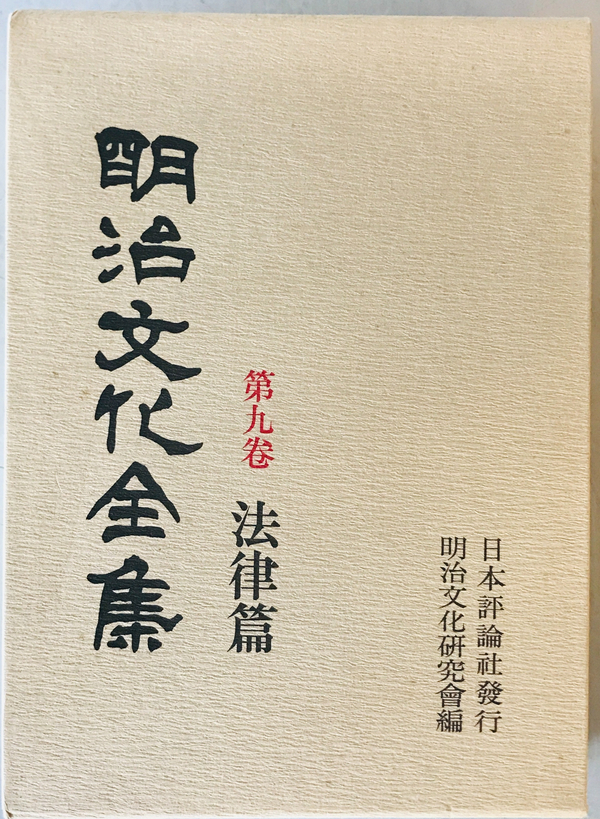 日本評論社發行
明治文化研究會編
第九卷 法律篇
明治文化全集